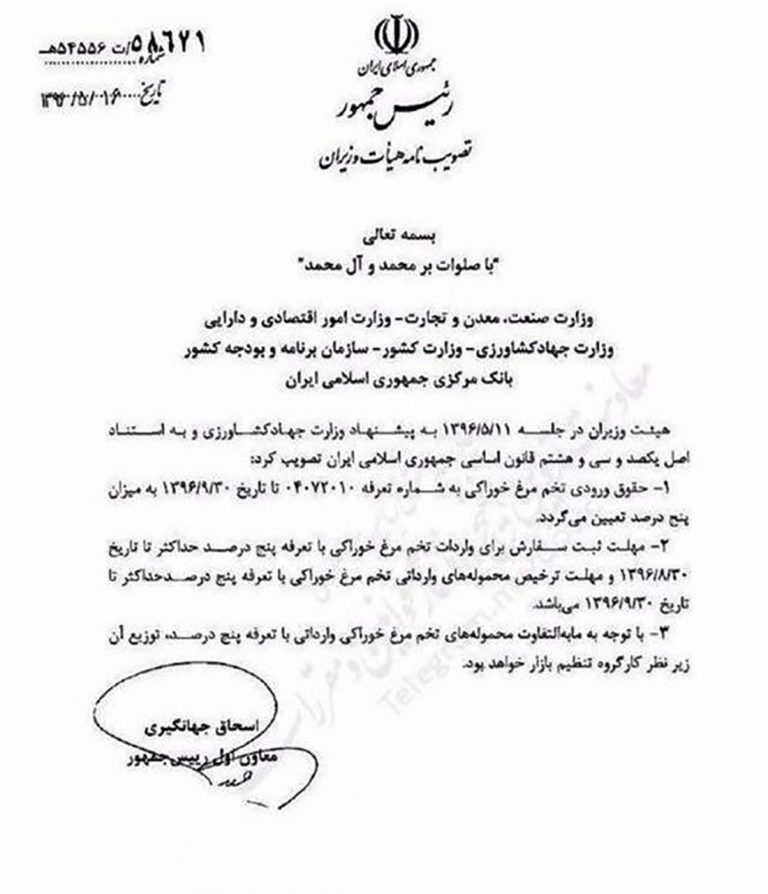 شماره ۵۸۶۷۱/ت ۵۴۵۵۶هـ
تاریخ ۱۳۹۶/۵/۰۱۶
جمهوری اسلامی ایران
رئیس جمهور
تصویب نامه هیأت وزیران
بسمه تعالی
"با صلوات بر محمد و آل محمد"
وزارت صنعت، معدن و تجارت- وزارت امور اقتصادی و دارایی
وزارت جهادکشاورزی- وزارت کشور- سازمان برنامه و بودجه کشور
بانک مرکزی جمهوری اسلامی ایران
هیئت وزیران در جلسه ۱۳۹۶/۵/۱۱ به پیشنهاد وزارت جهادکشاورزی و به استناد
اصل یکصد و سی و هشتم قانون اساسی جمهوری اسلامی ایران تصویب کرد:
۱- حقوق ورودی تخم مرغ خوراکی به شماره تعرفه ۰۴۰۷۲۰۱۰ تا تاریخ ۱۳۹۶/۹/۳۰ به میزان
پنج درصد تعیین می‌گردد.
۲- مهلت ثبت سفارش برای واردات تخم مرغ خوراکی با تعرفه پنج درصد حداکثر تا تاریخ
۱۳۹۶/۸/۳۰ و مهلت ترخیص محموله‌های وارداتی تخم مرغ خوراکی با تعرفه پنج درصدحداکثر تا
تاریخ ۱۳۹۶/۹/۳۰ می‌باشد.
۳- با توجه به مابه‌التفاوت محموله‌های تخم مرغ خوراکی وارداتی با تعرفه پنج درصد، توزیع آن
زیر نظر کارگروه تنظیم بازار خواهد بود.
اسحاق جهانگیری
معاون اول رییس‌جمهور